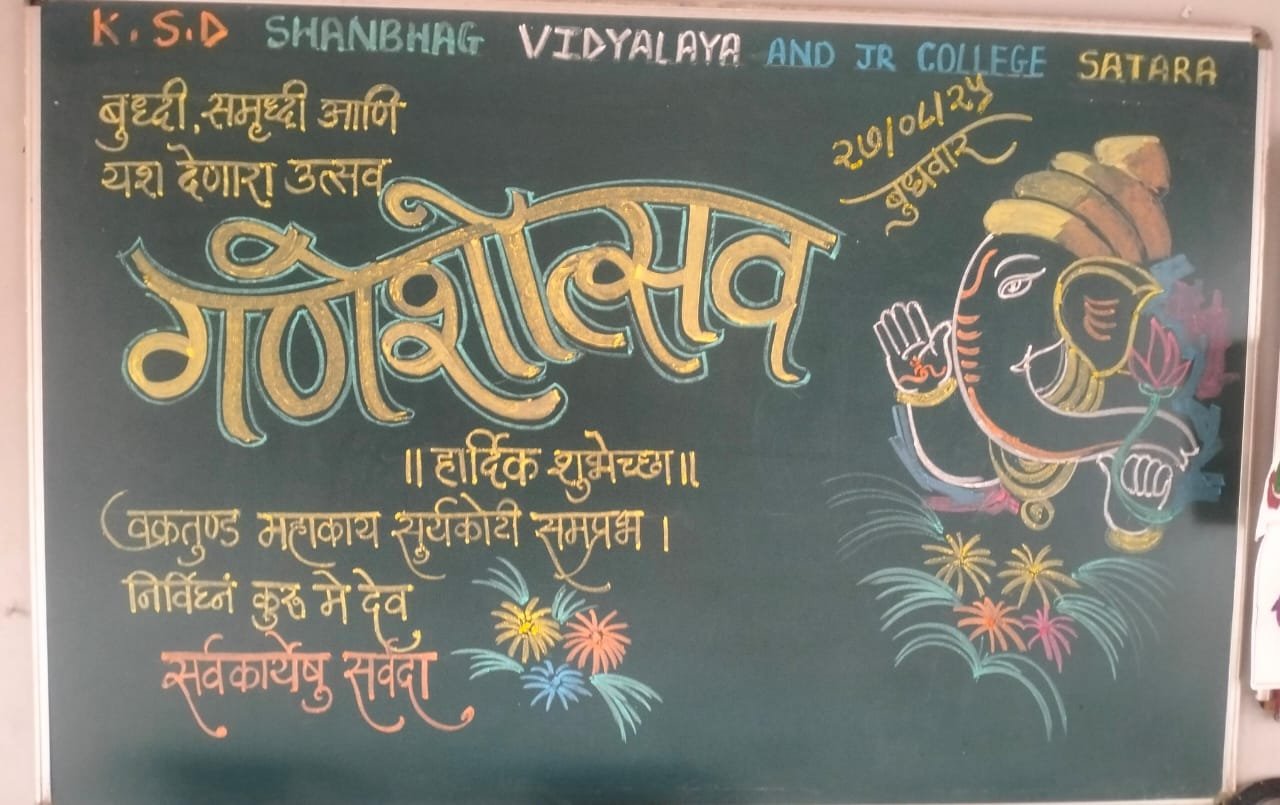 K.S.D SHANBHAG VIDYALAYA AND JR COLLEGE SATARA
बुध्दी, समृध्दी आणि
यश देणारा उत्सव
२७/०८/२५
बुधवार
गणेशोत्सव
॥ हार्दिक शुभेच्छा ॥
वक्रतुण्ड महाकाय सुर्यकोटी समप्रभ ।
निर्विघ्नं कुरू मे देव
सर्वकार्येषु सर्वदा
ॐ